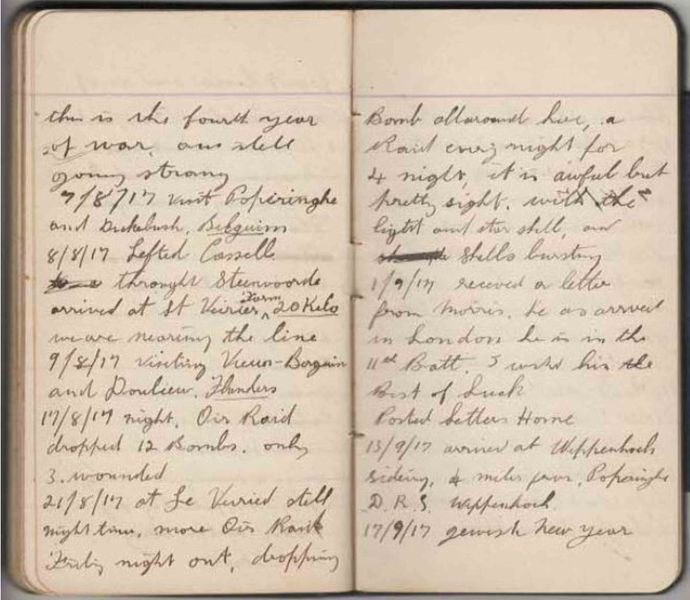 this is the fourth year
of war, and still
going strong
7/8/17 visit Poperinghe
and Dickebush, Belguim
8/8/17 Lefted Cassell
throught Steenvoorde
arrived at St Farm 20 Kilo
we are nearing the line
9/8/17 visiting Vieux-Berquin
and Doulieu, Flanders
17/8/17 night, Air Raid
dropped 12 Bombs. only
3. wounded
21/8/17 at Le still
night time, more Air Raid
night out, dropping
Bomb allaround here, a
Raid every night for
4 night, it is awful but
pretty sight, with the
light and star shell, and
shells bursting
1/9/17 recieved a letter
from Morris. he as arrived
in London he is in the
11th Batt. I wish him the
Best of Luck
Posted Letters Home
13/9/17 arrived at Wippenhoek
Sideing, 4 miles from, Poperinghe
D.R.S. Wippenhoek
17/9/17 Jewish New Year